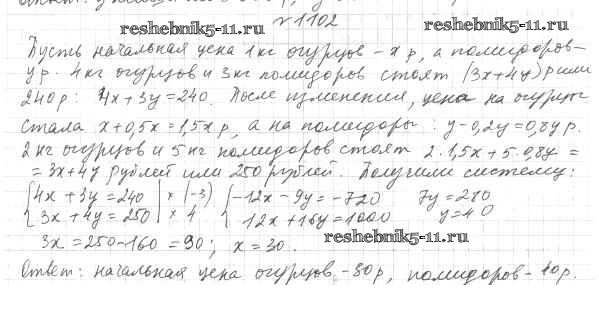 reshebnik5-11.ru
reshebnik5-11.ru
№1102
Пусть начальная цена 1 кг огурцов - x р, а помидоров-
y р. 4 кг огурцов и 3 кг помидоров стоят (3x+4y) р или
240 р: 4x+3y=240. После изменения, цена на огурцы
стала x+0,5x=1,5x р, а на помидоры: y-0,2y=0,8y р.
2 кг огурцов и 5 кг помидоров стоят 2·1,5x+5·0,8y =
= 3x+4y рублей или 250 рублей. Получили систему:
{4x+3y=240 | × (-3) {-12x-9y=-720 7y=280
{3x+4y=250 | × 4 {12x+16y=1000 y=40
3x=250-160=90; x=30.
reshebnik5-11.ru
Ответ: начальная цена огурцов -30р, помидоров - 40 р.